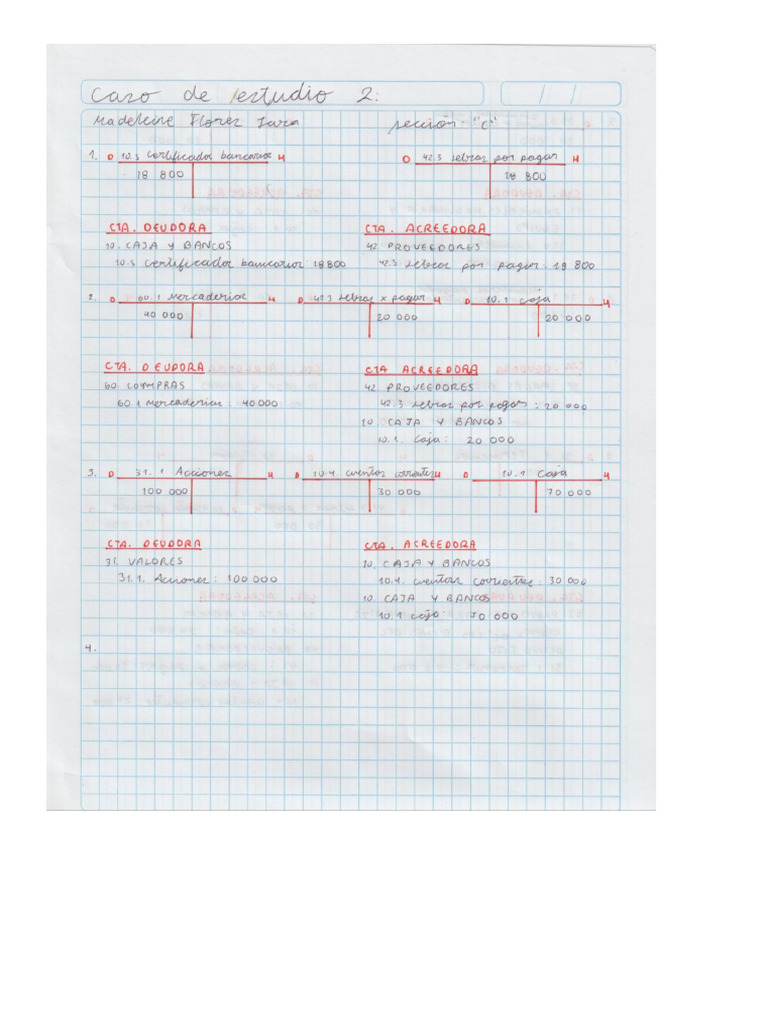 Caso de estudio 2:
/ /
Madeleine Flores Jara sección: "C"
1. D 10.5 Certificados bancarios H D 42.3 Letras por pagar H
18 800 18 800
CTA. DEUDORA CTA. ACREEDORA
10. CAJA Y BANCOS 42 PROVEEDORES
10.5 Certificados bancarios 18800 42.3 Letras por pagar: 18 800
2. D 60.1 Mercaderias H D 42.3 Letras x pagar H D 10.1 Caja H
40 000 20 000 20 000
CTA. DEUDORA CTA ACREEDORA
60. COMPRAS 42 PROVEEDORES
60.1 Mercaderias: 40000 42.3 Letras por pagar: 20 000
10. CAJA Y BANCOS
10.1. Caja: 20 000
3. D 31.1 Acciones H D 10.4. cuentas corrientes H D 10.1 Caja H
100 000 30 000 70 000
CTA. DEUDORA CTA. ACREEDORA
31. VALORES 10. CAJA Y BANCOS
31.1. Acciones: 100 000 10.4. cuentas corrientes: 30 000
10 CAJA Y BANCOS
10.1 caja: 70 000
4.